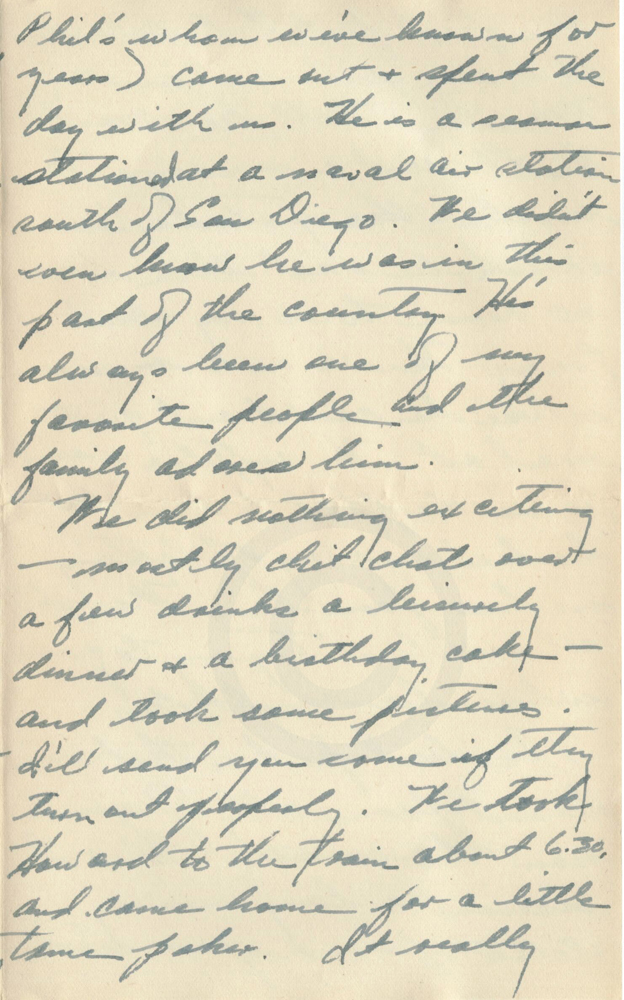 Phil's whom we've known for
years) came out + spent the
day with us. He is a seaman
stationed at a naval air station
south of San Diego. We didn't
even know he was in this
part of the country. He's
always been one of my
favorite people and the
family adores him.
We did nothing exciting
— mostly chit chat over
a few drinks a leisurely
dinner & a birthday cake —
and took some pictures.
I'll send you some if they
turn out properly. We took
Howard to the train about 6:30,
and came home for a little
tame poker. It really